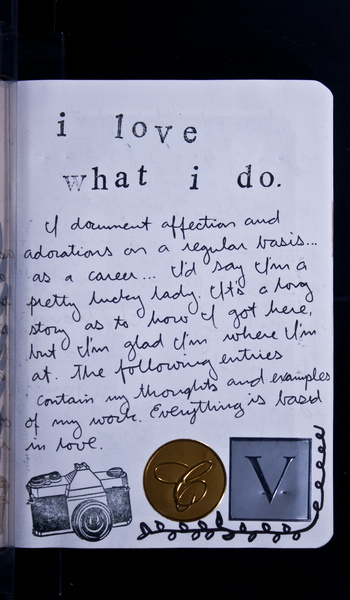 i love
what i do.
I document affection and
adorations on a regular basis...
as a career... I'd say I'm a
pretty lucky lady. It's a long
story as to how I got here,
but I'm glad I'm where I'm
at. The following entries
contain my thoughts and examples
of my work. Everything is based
in love.
C V.